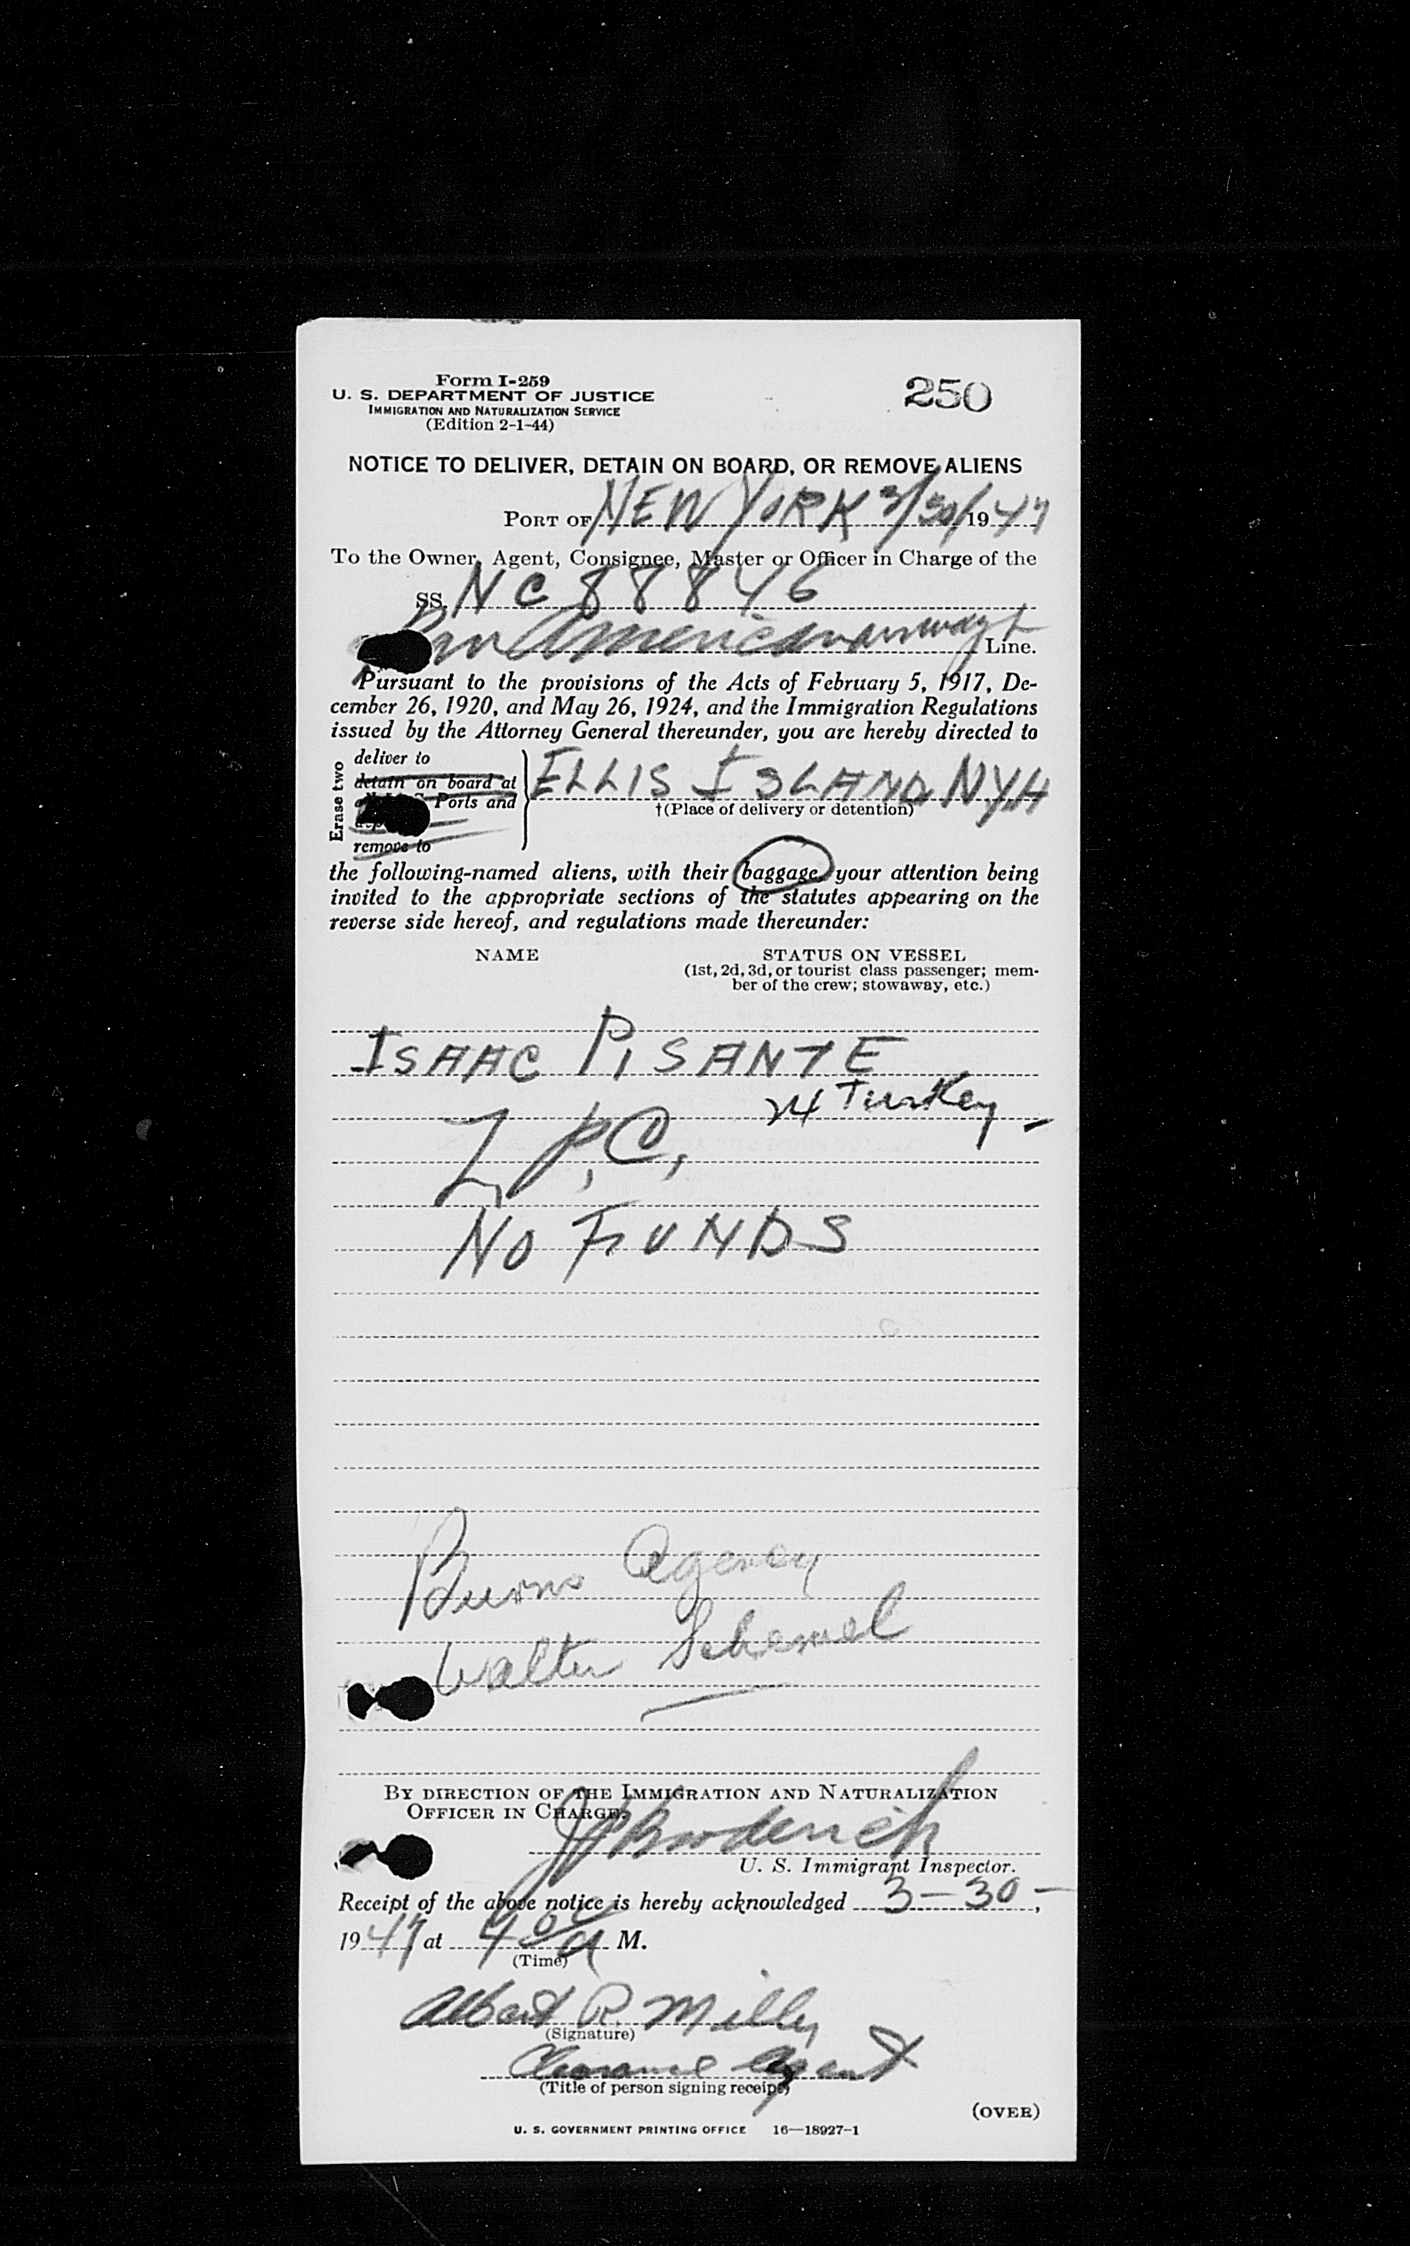 Form I-259
250
U. S. DEPARTMENT OF JUSTICE
IMMIGRATION AND NATURALIZATION SERVICE
(Edition 2-1-44)
NOTICE TO DELIVER, DETAIN ON BOARD, OR REMOVE ALIENS
PORT OF NEW YORK 3/30/1947
To the Owner, Agent, Consignee, Master or Officer in Charge of the
SS. NC 88846
Pan American Airways Line.
Pursuant to the provisions of the Acts of February 5, 1917, De-
cember 26, 1920, and May 26, 1924, and the Immigration Regulations
issued by the Attorney General thereunder, you are hereby directed to
Erase two
deliver to
detain on board at
Ports and
remove to
ELLIS ISLAND NYH
†(Place of delivery or detention)
the following-named aliens, with their baggage, your attention being
invited to the appropriate sections of the statutes appearing on the
reverse side hereof, and regulations made thereunder:
NAME STATUS ON VESSEL
(1st, 2d, 3d, or tourist class passenger; mem-
ber of the crew; stowaway, etc.)
ISAAC PISANTE
24 Turkey -
L.P.C.
NO FUNDS
Burns Agency
Walter Schemel
BY DIRECTION OF THE IMMIGRATION AND NATURALIZATION
OFFICER IN CHARGE:
J P Broderick
U. S. Immigrant Inspector.
Receipt of the above notice is hereby acknowledged 3-30-,
1947, at 4 00 a M.
(Time)
Albert R. Milly
(Signature)
Clearance Agent
(Title of person signing receipt)
(OVER)
U. S. GOVERNMENT PRINTING OFFICE 16—18927-1